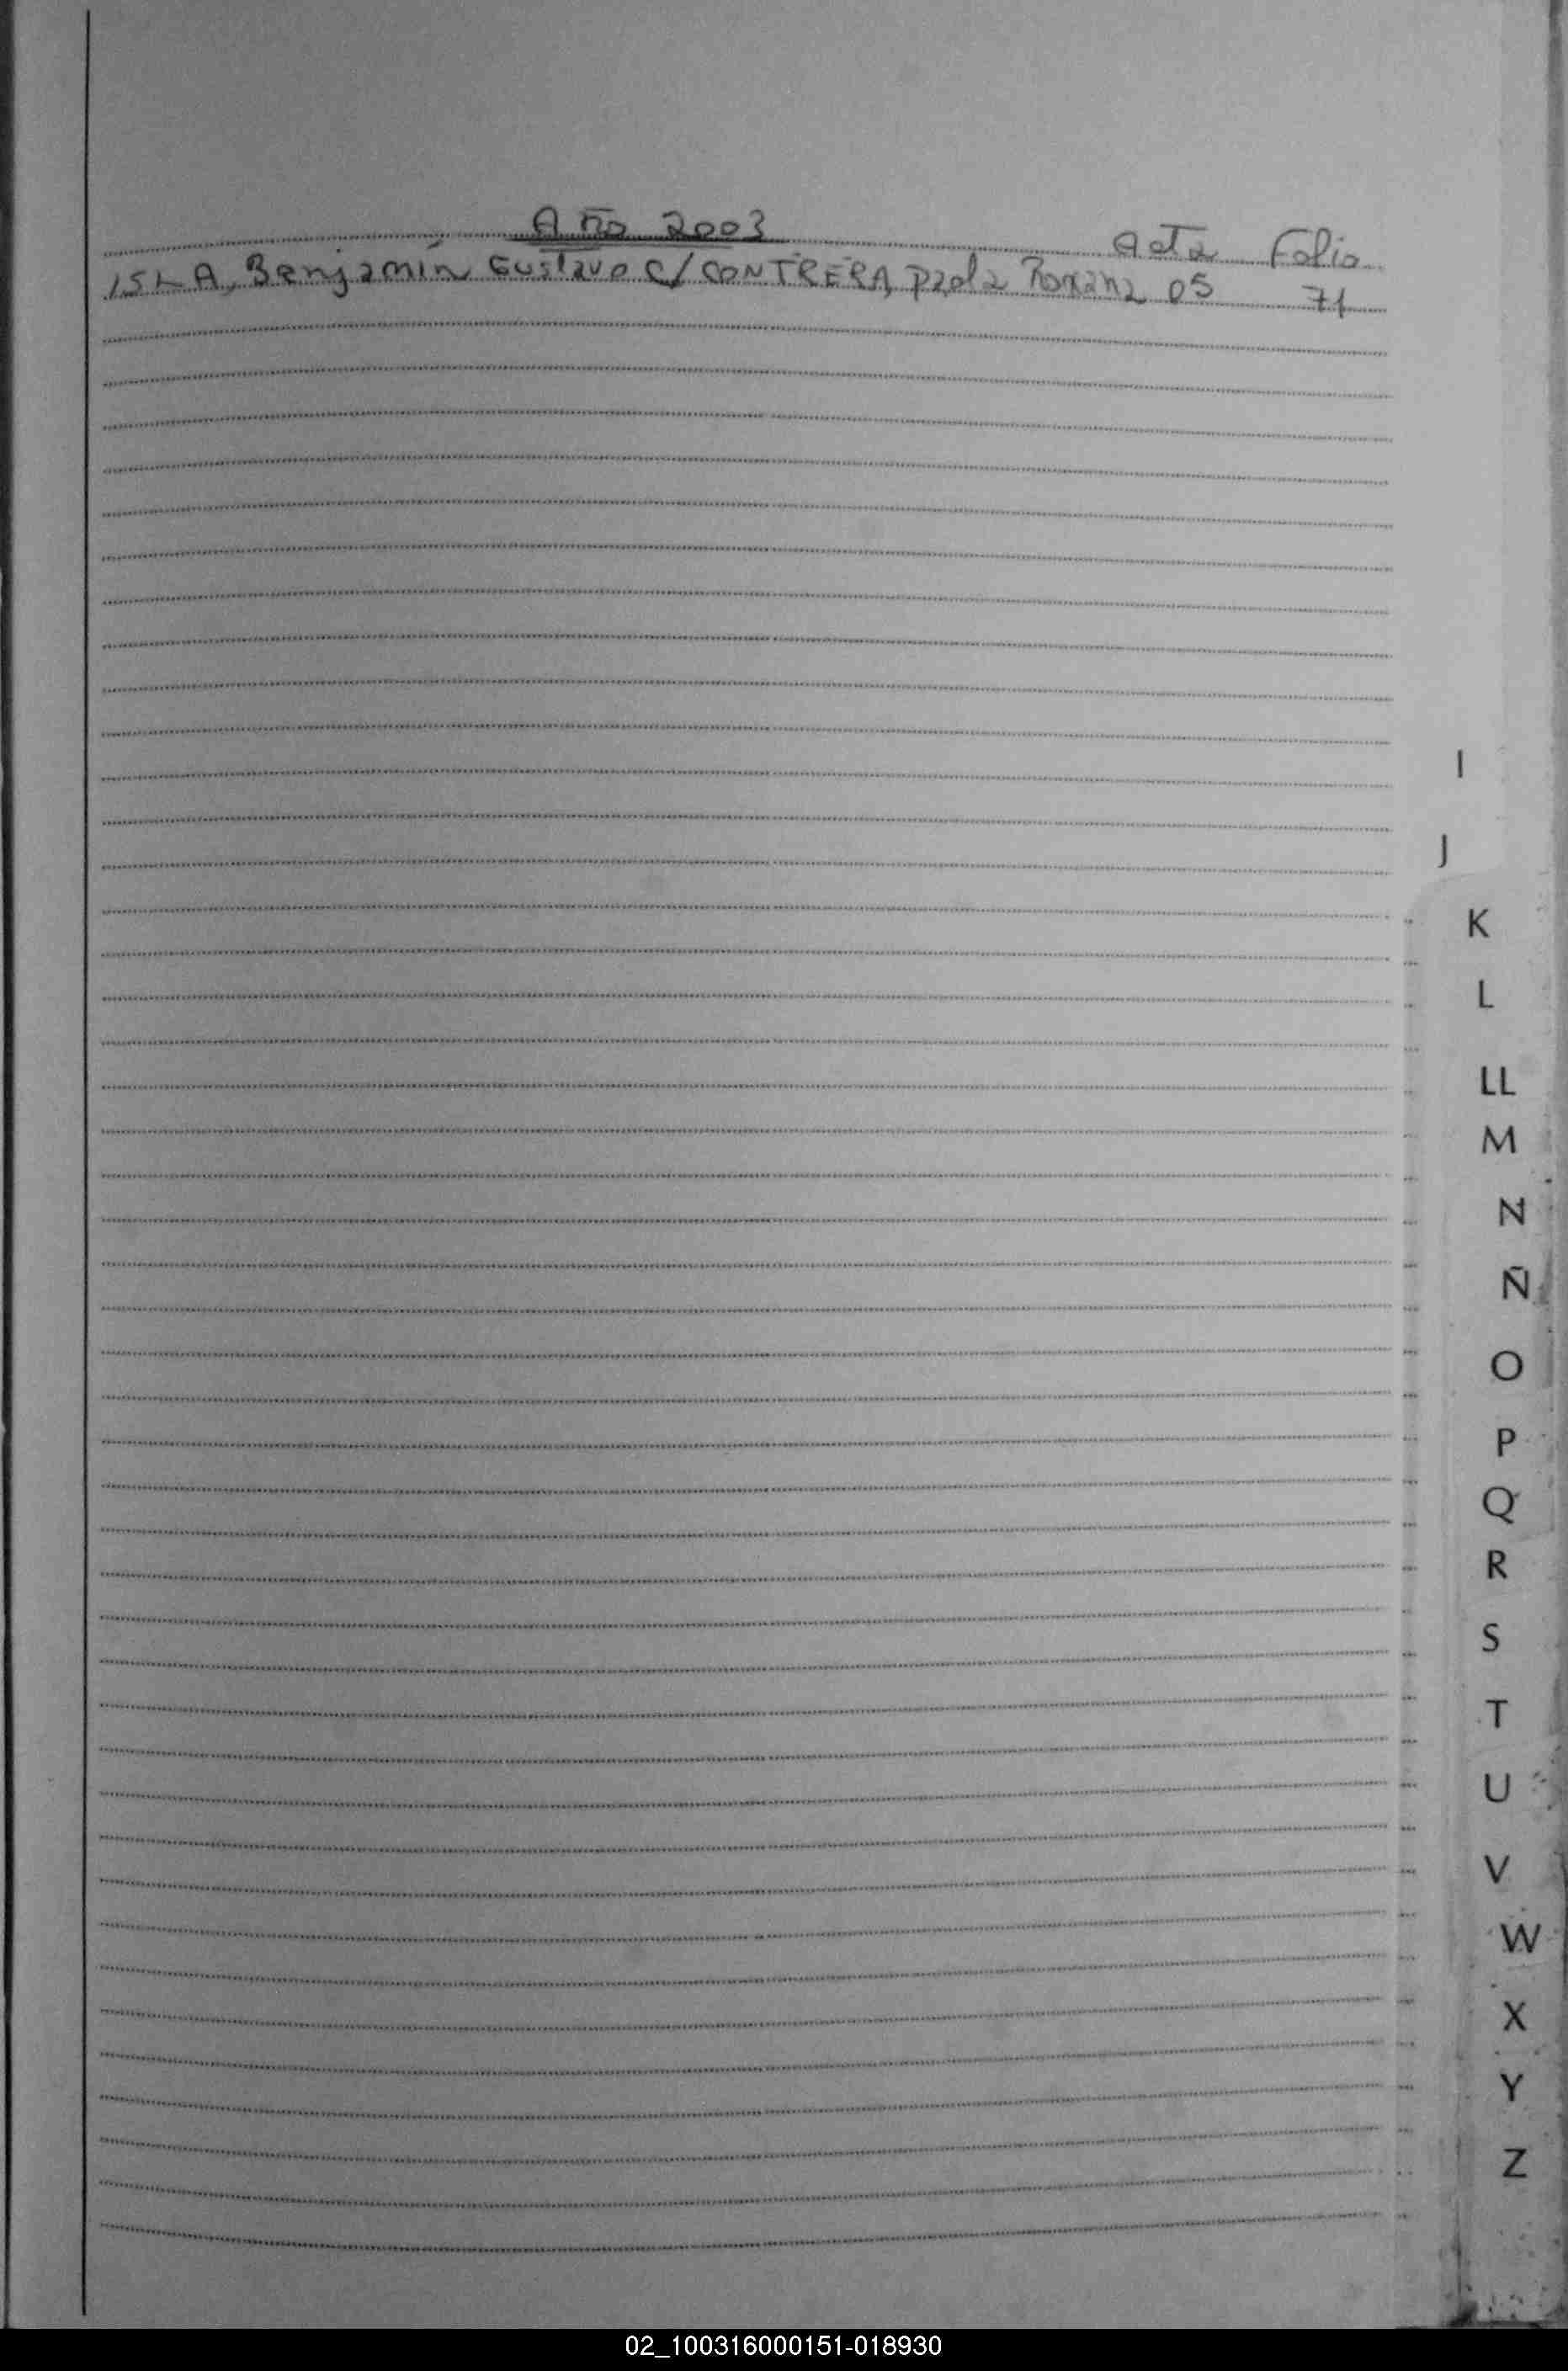 Año 2003
Acta Folio
ISLA, Benjamín Gustavo C/ CONTRERA, Paola Roxana 05 71
I
J
K
L
LL
M
N
Ñ
O
P
Q
R
S
T
U
V
W
X
Y
Z
02_100316000151-018930